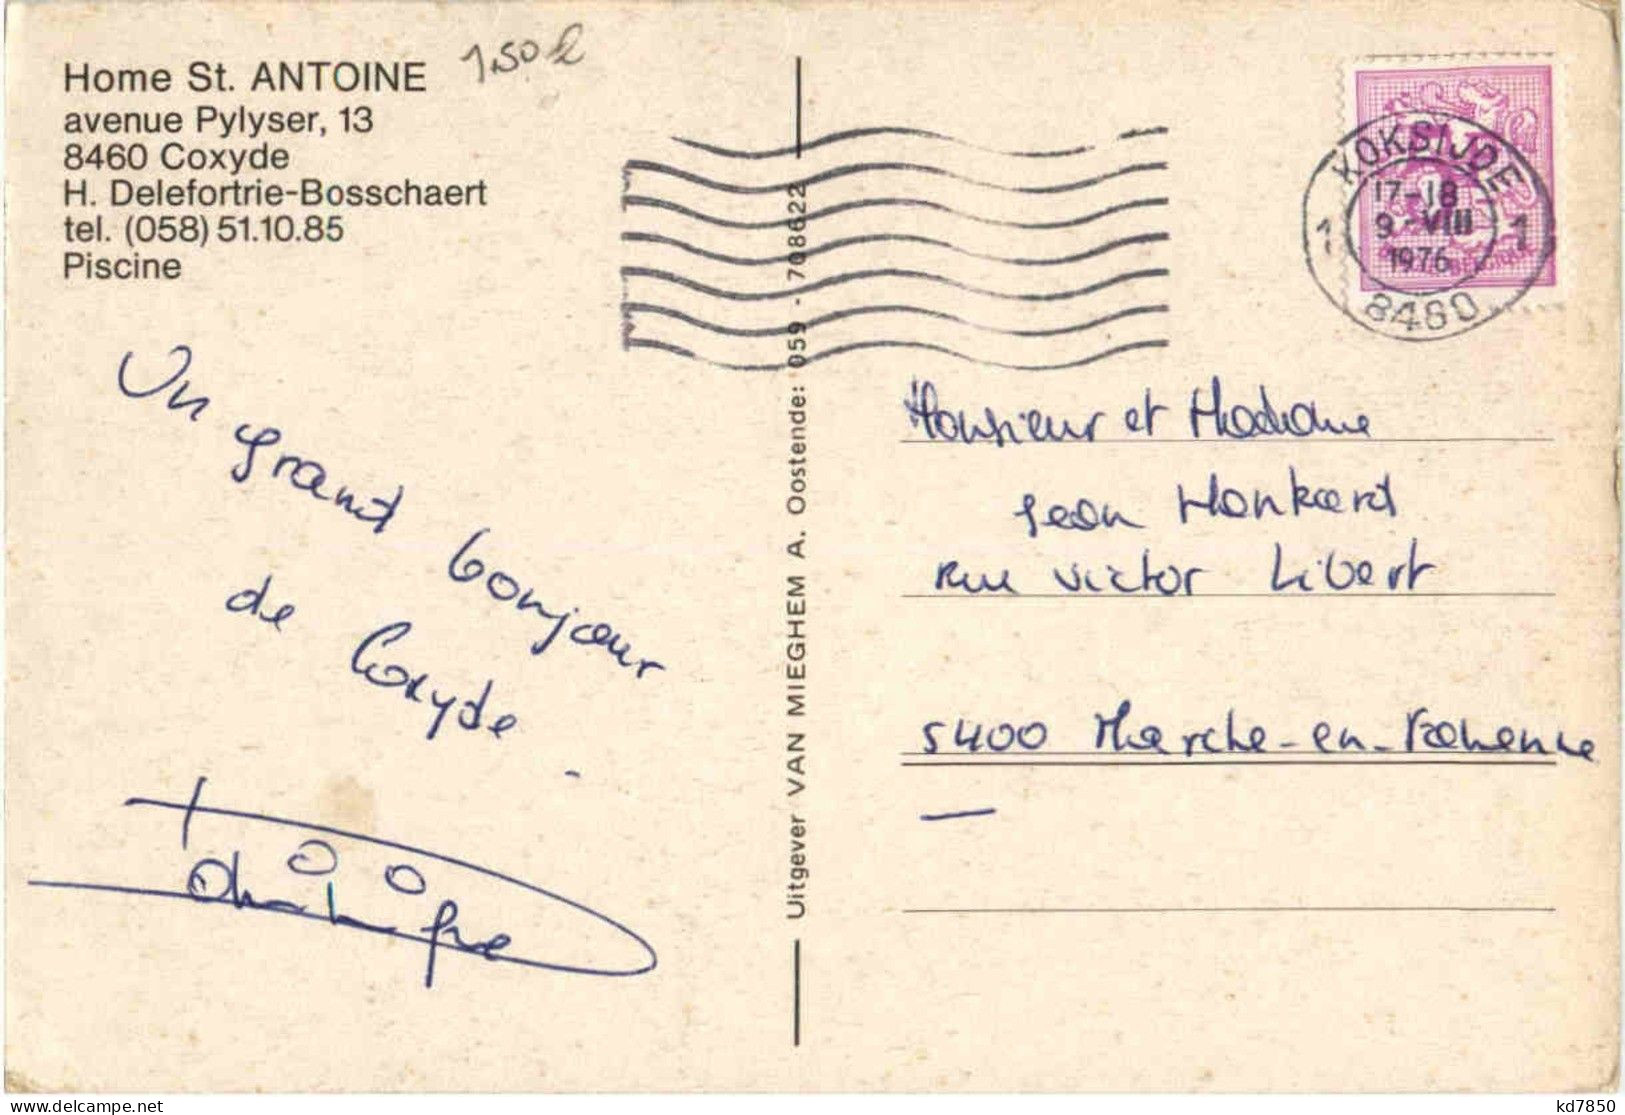 Home St. ANTOINE
avenue Pylyser, 13
8460 Coxyde
H. Delefortrie-Bosschaert
tel. (058) 51.10.85
Piscine
1.50 £
Un grand bonjour
de Coxyde.
Uitgever VAN MIEGHEM A. Oostende: 059 - 708622
KOKSIJDE
17-18
9-VIII
1976
1 1
8460
Monsieur et Madame
Jean Monkard
rue Victor Libert
5400 Marche-en-Famenne
kd7850